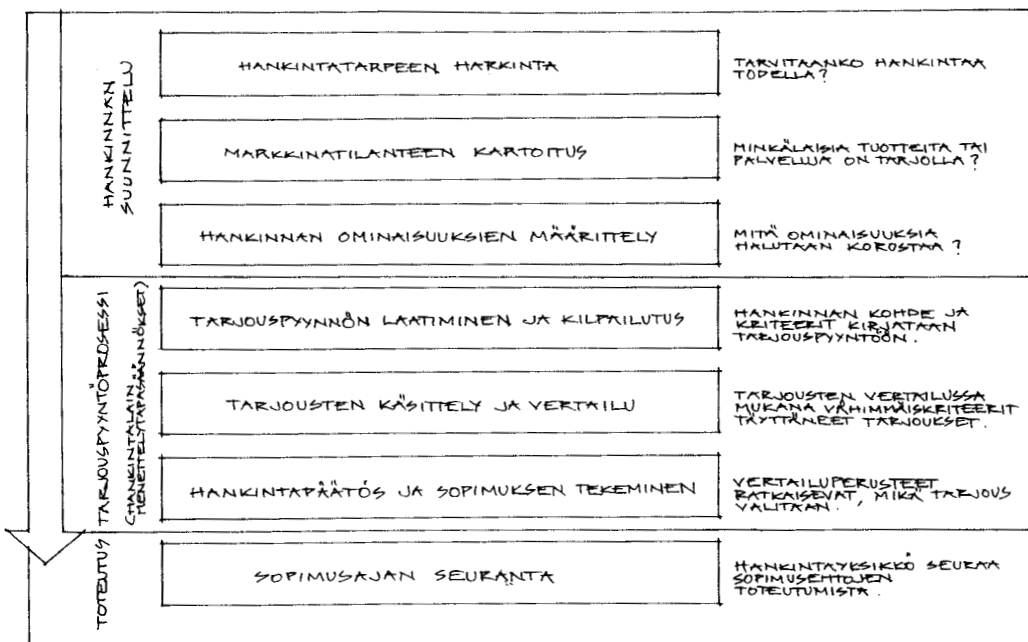 HANKINNAN
SUUNNITTELU
HANKINTATARPEEN HARKINTA
TARVITAANKO HANKINTAA
TODELLA?
MARKKINATILANTEEN KARTOITUS
MINKÄLAISIA TUOTTEITA TAI
PALVELUJA ON TARJOLLA?
HANKINNAN OMINAISUUKSIEN MÄÄRITTELY
MITÄ OMINAISUUKSIA
HALUTAAN KOROSTAA?
TARJOUSPYYNTÖPROSESSI
(HANKINTALAIN
MENETTELYTAPASÄÄNNÖKSET)
TARJOUSPYYNNÖN LAATIMINEN JA KILPAILUTUS
HANKINNAN KOHDE JA
KRITEERIT KIRJATAAN
TARJOUSPYYNTÖÖN.
TARJOUSTEN KÄSITTELY JA VERTAILU
TARJOUSTEN VERTAILUSSA
MUKANA VÄHIMMÄISKRITEERIT
TÄYTTÄNEET TARJOUKSET.
HANKINTAPÄÄTÖS JA SOPIMUKSEN TEKEMINEN
VERTAILUPERUSTEET
RATKAISEVAT, MIKÄ TARJOUS
VALITAAN.
TOTEUTUS
SOPIMUSAJAN SEURANTA
HANKINTAYKSIKKÖ SEURAA
SOPIMUSEHTOJEN
TOTEUTUMISTA.